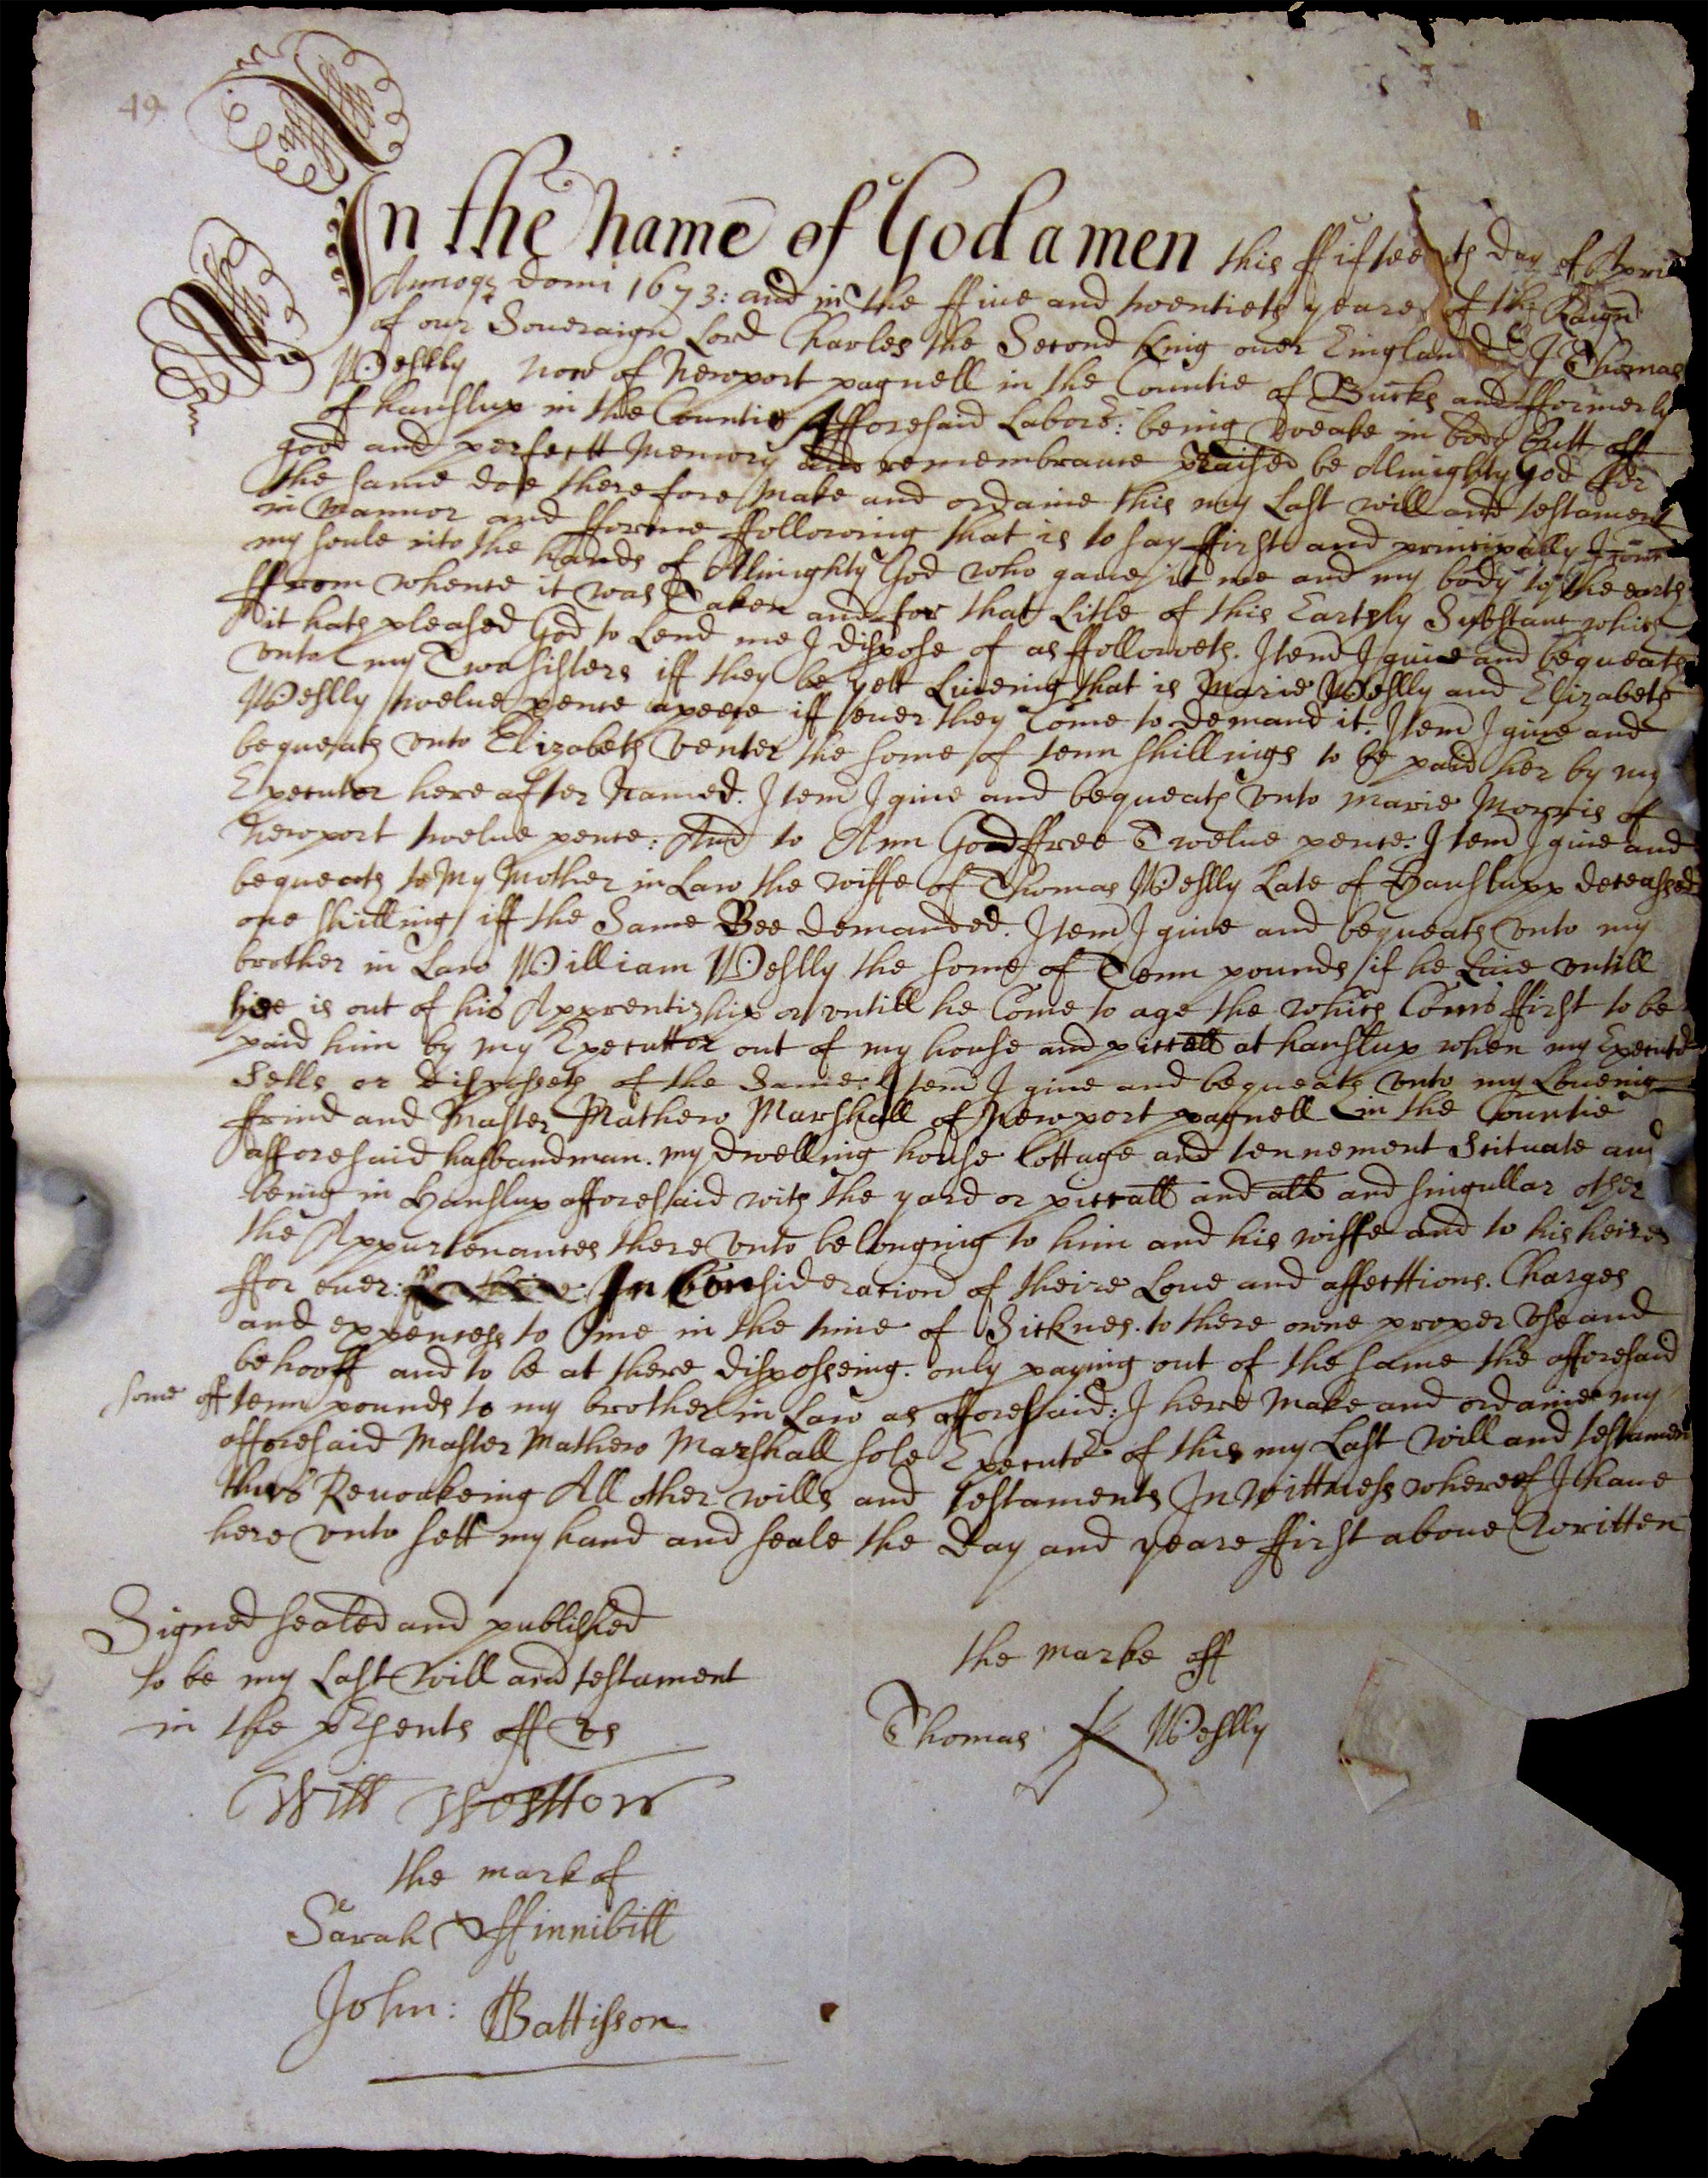 49
In the name of God amen this ffifteenth Day of Apri
Annoqe Domi 1673: and in the ffiue and twentieth yeare of the Raign
of our Soueraign Lord Charles the Second King ouer England &c I Thomas
Weslly now of Newport pagnell in the Countie of Bucks and fformerly
of hanslup in the Countie Afforesaid Labore: being weake in body butt off
good and perfectt Memory and remembrance praised be Almighty god ffor
the same doe therefore Make and ordaine this my Last will and testament
in mannor and fforme ffollowing that is to say ffirst and principally I
my soule into the hands of Almighty God who gaue it me and my body to the earth
ffrom whence it was Taken and for that Litle of this Earthly Substanc which
it hath pleased God to Lend me I dispose of as ffolloweth. Item I giue and bequeath
vnto my Two sisters iff they be yett Liueing that is Marie Weslly and Elizabeth
Weslly twelue pence apeece iff euer they Come to demand it. Item I giue and
bequeath vnto Elizabeth Venter the some of tenn shillings to be paid her by my
Executor here after Named. Item I giue and bequeath vnto Marie Morris of
Newport twelue pence: And to Ann Godffree Twelue pence. Item I giue and
bequeath to My Mother in Law the wiffe of Thomas Weslly Late of Hanslupp deceassed
one shilling iff the Same Bee demanded. Item I giue and bequeath vnto my
brother in Law William Weslly the some of Tenn pounds if he Liue vntill
hee is out of his Apprentiship or vntill he Come to age the which Coms ffirst to be
paid him by my Executtor out of my house and piccall at hanslup when my Executor
Sells or disposseth of the Same: Item I giue and bequeath vnto my Loueing
ffrind and Master Mathew Marshall of Newport pagnell in the Countie
afforesaid husbandman. my dwelling house Cottage and tennement Scituate and
being in Hanslup afforesaid with the yard or piccall and all and singullar other
the Appurtenances there vnto belonging to him and his wiffe and to his heires
ffor euer: In Consideracion of theire Loue and affecttions. Charges
and expencess to me in the time of Sicknes. to there owne proper vse and
behooff and to be at there disposseing. only paying out of the same the afforesaid
some off tenn pounds to my brother in Law as afforessaid: I here Make and ordaine my
afforesaid Master Mathew Marshall sole Executo of this my Last will and testament
thus Reuoakeing All other wills and testaments In wittness whereof I haue
here vnto sett my hand and seale the Day and yeare ffirst aboue written
Signed sealed and published
to be my Last will and testament
in the presents off vs
Will Westton
the mark of
Sarah ffinnibill
John: Battisson
the marke off
Thomas Weslly